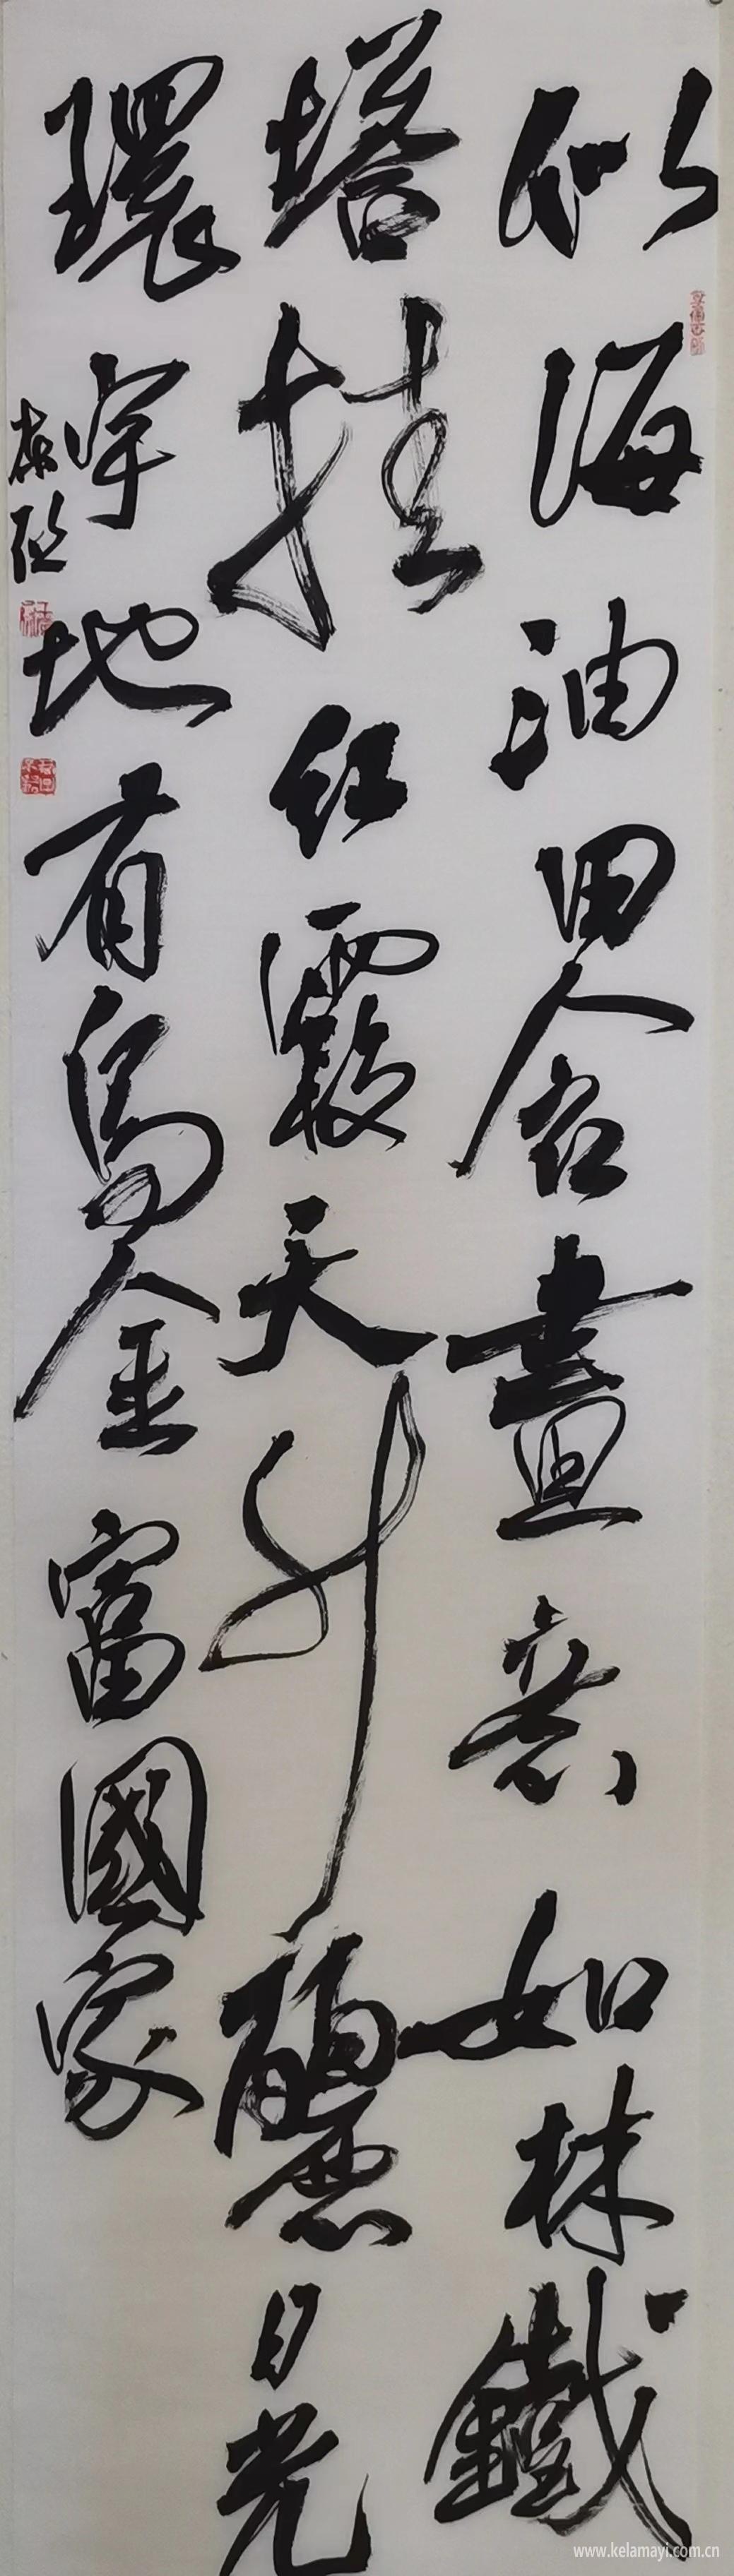 似海油田含畫意如林鐵
塔挂紅霞天升麗日光
環宇地有烏金富國家
www.kelamayi.com.cn